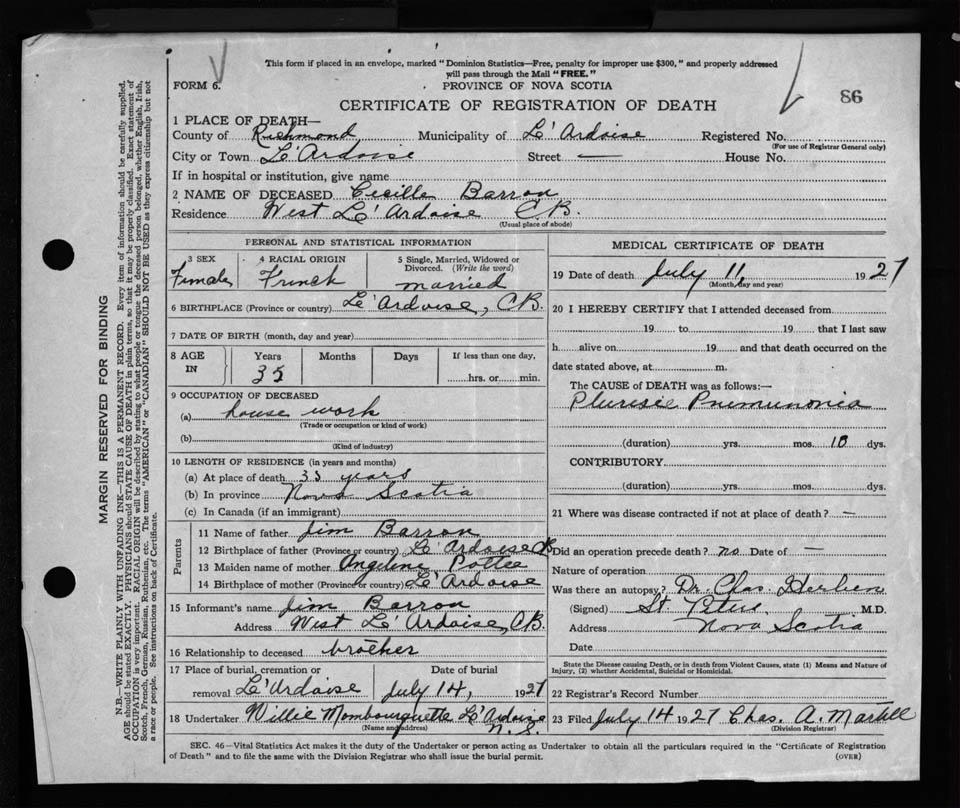 This form if placed in an envelope, marked "Dominion Statistics—Free, penalty for improper use $300," and properly addressed
will pass through the Mail "FREE."
FORM 6.
PROVINCE OF NOVA SCOTIA
CERTIFICATE OF REGISTRATION OF DEATH
86
1 PLACE OF DEATH—
County of Richmond Municipality of L'Ardoise Registered No.
(For use of Registrar General only)
City or Town L'Ardoise Street — House No.
If in hospital or institution, give name
2 NAME OF DECEASED Cecille Barron
Residence West L'Ardoise C.B.
(Usual place of abode)
PERSONAL AND STATISTICAL INFORMATION
3 SEX 4 RACIAL ORIGIN 5 Single, Married, Widowed or
Divorced. (Write the word)
Female French married
6 BIRTHPLACE (Province or country) L'Ardoise, C.B.
7 DATE OF BIRTH (month, day and year)
8 AGE IN Years Months Days If less than one day,
35 hrs. or min.
9 OCCUPATION OF DECEASED
(a) house work
(Trade or occupation or kind of work)
(b)
(Kind of industry)
10 LENGTH OF RESIDENCE (in years and months)
(a) At place of death 35 years
(b) In province Nova Scotia
(c) In Canada (if an immigrant)
Parents
11 Name of father Jim Barron
12 Birthplace of father (Province or country) L'Ardoise C.B.
13 Maiden name of mother Angeline Pottee
14 Birthplace of mother (Province or country) L'Ardoise
15 Informant's name Jim Barron
Address West L'Ardoise, C.B.
16 Relationship to deceased brother
17 Place of burial, cremation or Date of burial
removal L'Ardoise July 14, 1927
18 Undertaker Willie Mombourquette L'Ardoise
(Name and address) N.S.
MEDICAL CERTIFICATE OF DEATH
19 Date of death July 11, 1927
(Month, day and year)
20 I HEREBY CERTIFY that I attended deceased from
19 to 19 that I last saw
h alive on 19 and that death occurred on the
date stated above, at m.
The CAUSE of DEATH was as follows:—
Plurisie Pnemunonia
(duration) yrs. mos. 10 dys.
CONTRIBUTORY
(duration) yrs. mos. dys.
21 Where was disease contracted if not at place of death? —
Did an operation precede death? no Date of —
Nature of operation
Was there an autopsy? Dr. Chas
(Signed) St. Peters M.D.
Address Nova Scotia
Date
State the Disease causing Death, or in death from Violent Causes, state (1) Means and Nature of
Injury, (2) whether Accidental, Suicidal or Homicidal.
22 Registrar's Record Number
23 Filed July 14 1927 Chas. A. Martell
(Division Registrar)
SEC. 46—Vital Statistics Act makes it the duty of the Undertaker or person acting as Undertaker to obtain all the particulars required in the "Certificate of Registration
of Death" and to file the same with the Division Registrar who shall issue the burial permit.
(OVER)
MARGIN RESERVED FOR BINDING
N.B.—WRITE PLAINLY WITH UNFADING INK—THIS IS A PERMANENT RECORD. Every item of information should be carefully supplied.
AGE should be stated EXACTLY. PHYSICIANS should STATE CAUSE OF DEATH in plain terms, so that it may be properly classified. Exact statement of
OCCUPATION is very important. RACIAL ORIGIN will be described by stating to what people or tongue the deceased person belonged, whether English, Irish,
Scotch, French, German, Russian, Ruthenian, etc. The terms "AMERICAN" or "CANADIAN" SHOULD NOT BE USED as they express citizenship but not
a race or people. See instructions on back of Certificate.